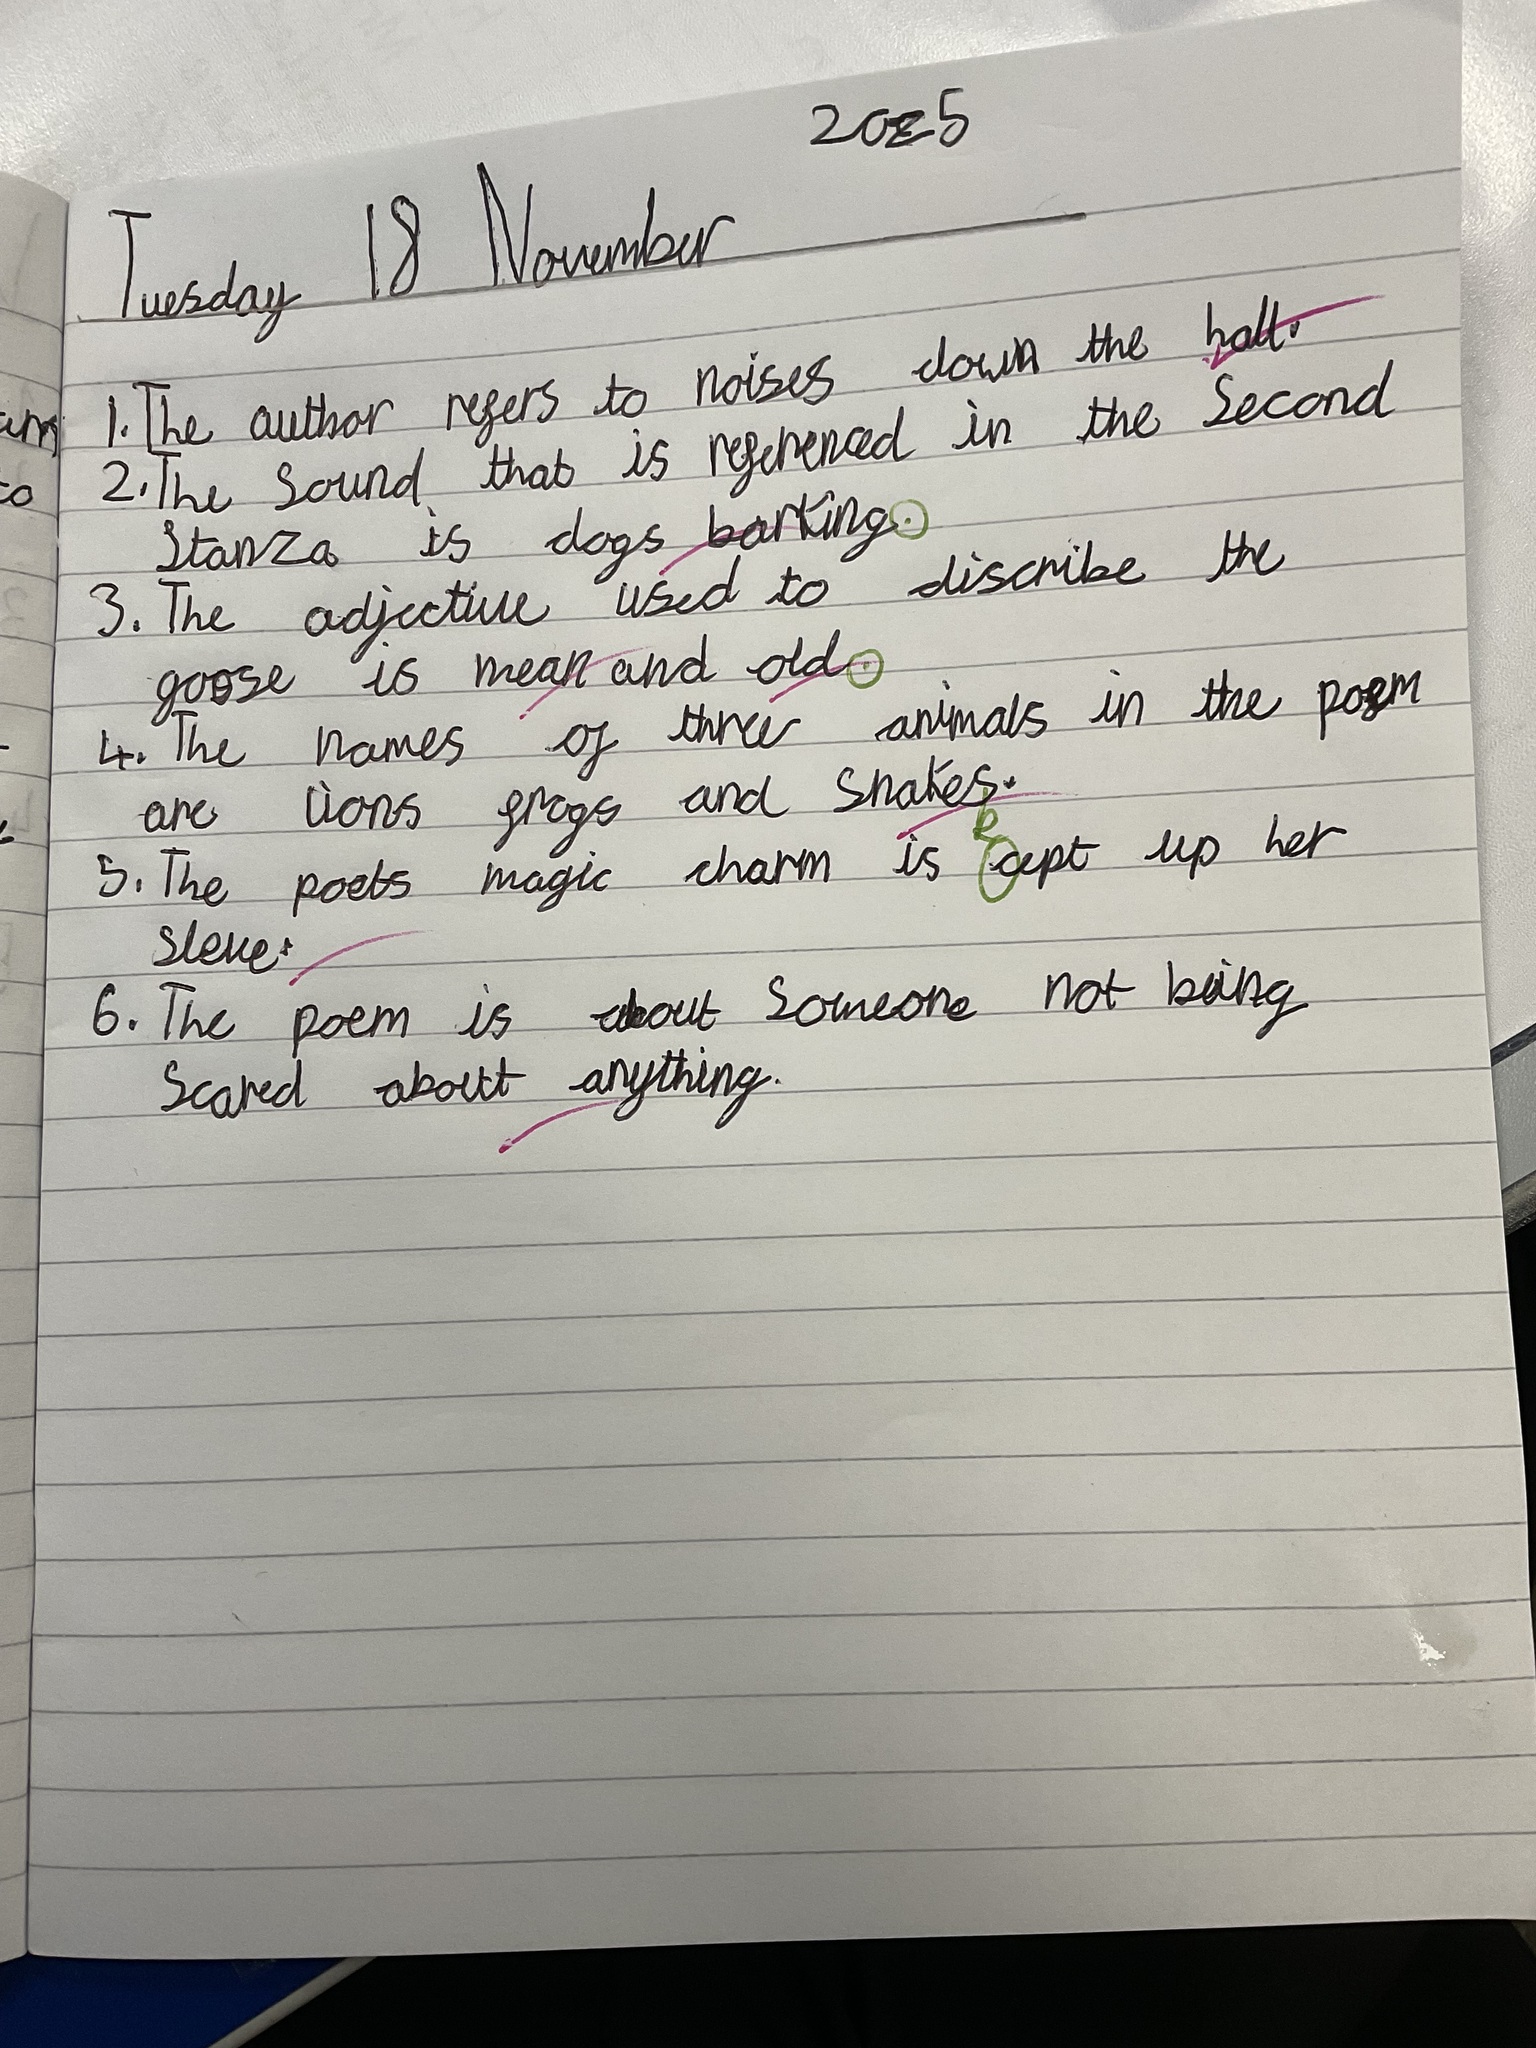 2025
Tuesday 18 November
1. The author refers to noises down the hall.
2. The Sound that is referenced in the Second
Stanza is dogs barking.
3. The adjective used to discribe the
goose is mean and old.
4. The names of three animals in the poem
are lions frogs and Snakes.
k
5. The poets magic charm is cept up her
sleve.
6. The poem is about Someone not being
Scared about anything.
to